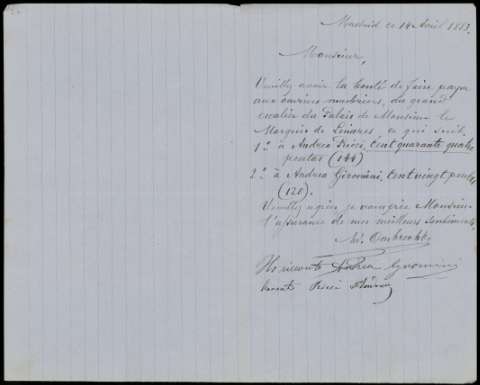 Madrid ce 14 Août 1883.
Monsieur,
Veuillez avoir la bonté de faire payer
aux ouvriers marbriers, du grand
escalier du Palais de Monsieur le
Marquis de Linares, ce qui suit.
1º à Andrea Ricci, Cent quarante quatre
pesetas (144)
2º à Andrea Giromini, Cent vingt pesetas
(120).
Veuillez agréer, je vous prie Monsieur
l'assurance de mes meilleurs sentiments,
Ho ricevuto Andrea Giromini
Ricci